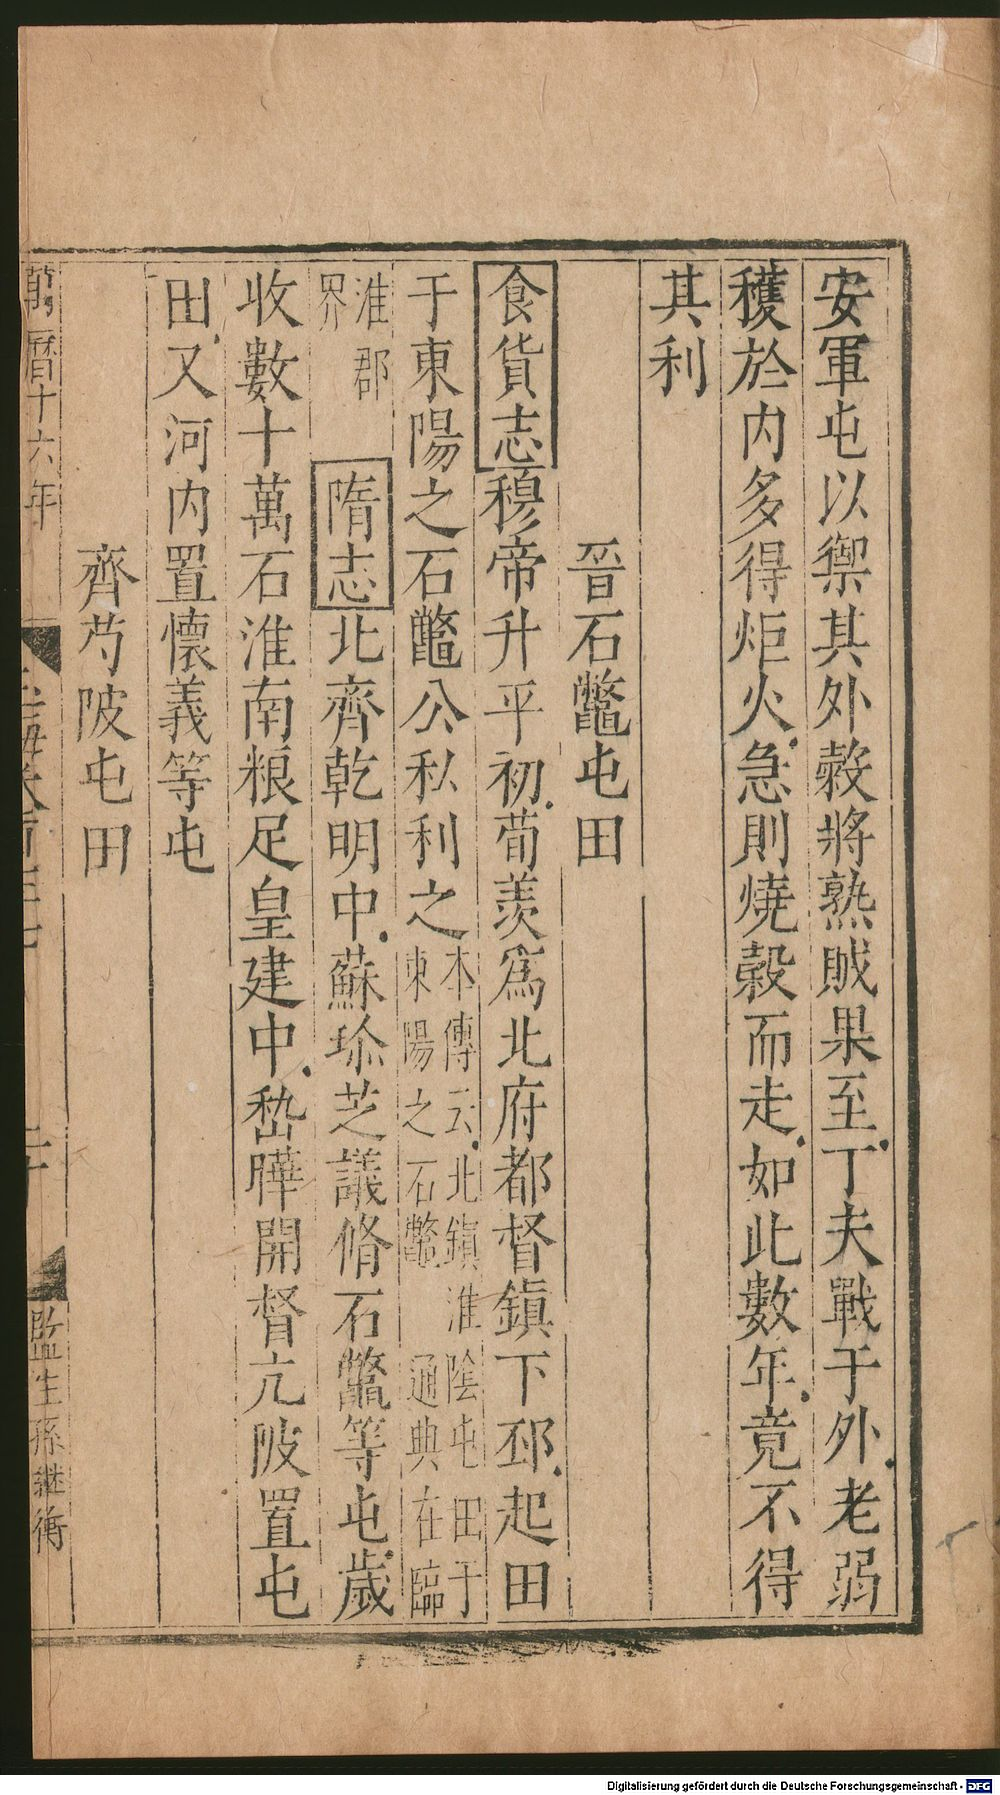 安軍屯以禦其外穀將熟賊果至丁夫戰于外老弱
穫於内多得炬火急則燒穀而走如此數年竟不得
其利
晉石鼈屯田
食貨志穆帝升平初荀羨爲北府都督鎮下邳起田
于東陽之石鼈公私利之本傳云北鎮淮陰屯田于
東陽之石鼈 通典在臨
淮郡
界 隋志北齊乾明中蘇珍芝議脩石鼈等屯歲
收數十萬石淮南粮足皇建中嵇曄開督亢陂置屯
田又河内置懷義等屯
齊芍陂屯田
萬曆十六年 玉海卷百 二十 監生孫継衛
Digitalisierung gefördert durch die Deutsche Forschungsgemeinschaft - DFG